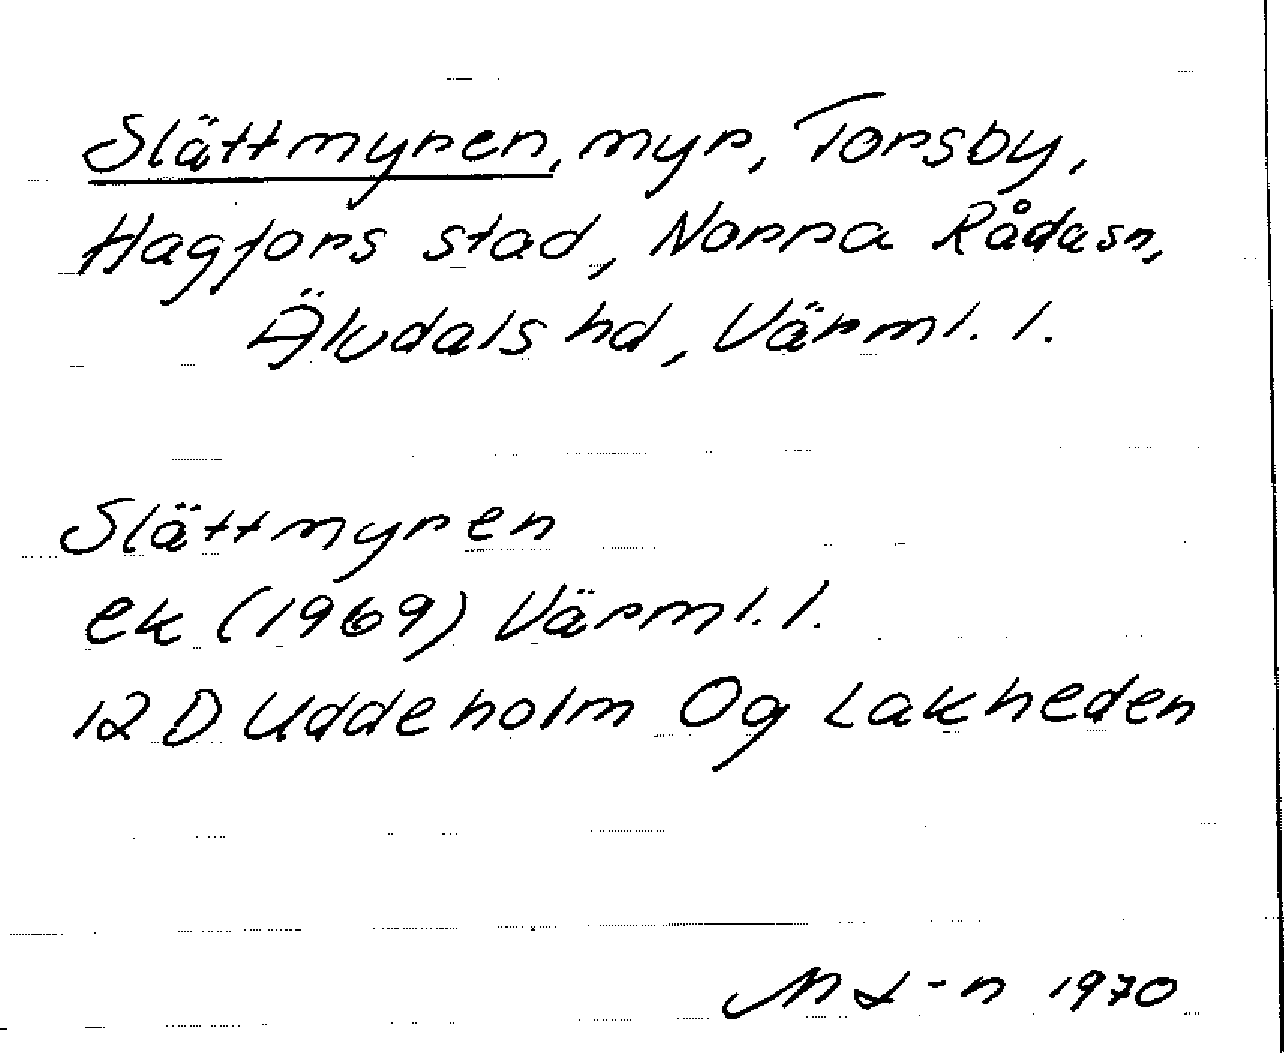 Slättmyren, myr, Torsby,
Hagfors stad, Norra Rådasn,
Älvdals hd, Värml. l.
Slättmyren
ek (1969) Värml. l.
12 D Uddeholm 0g Lakheden
1970